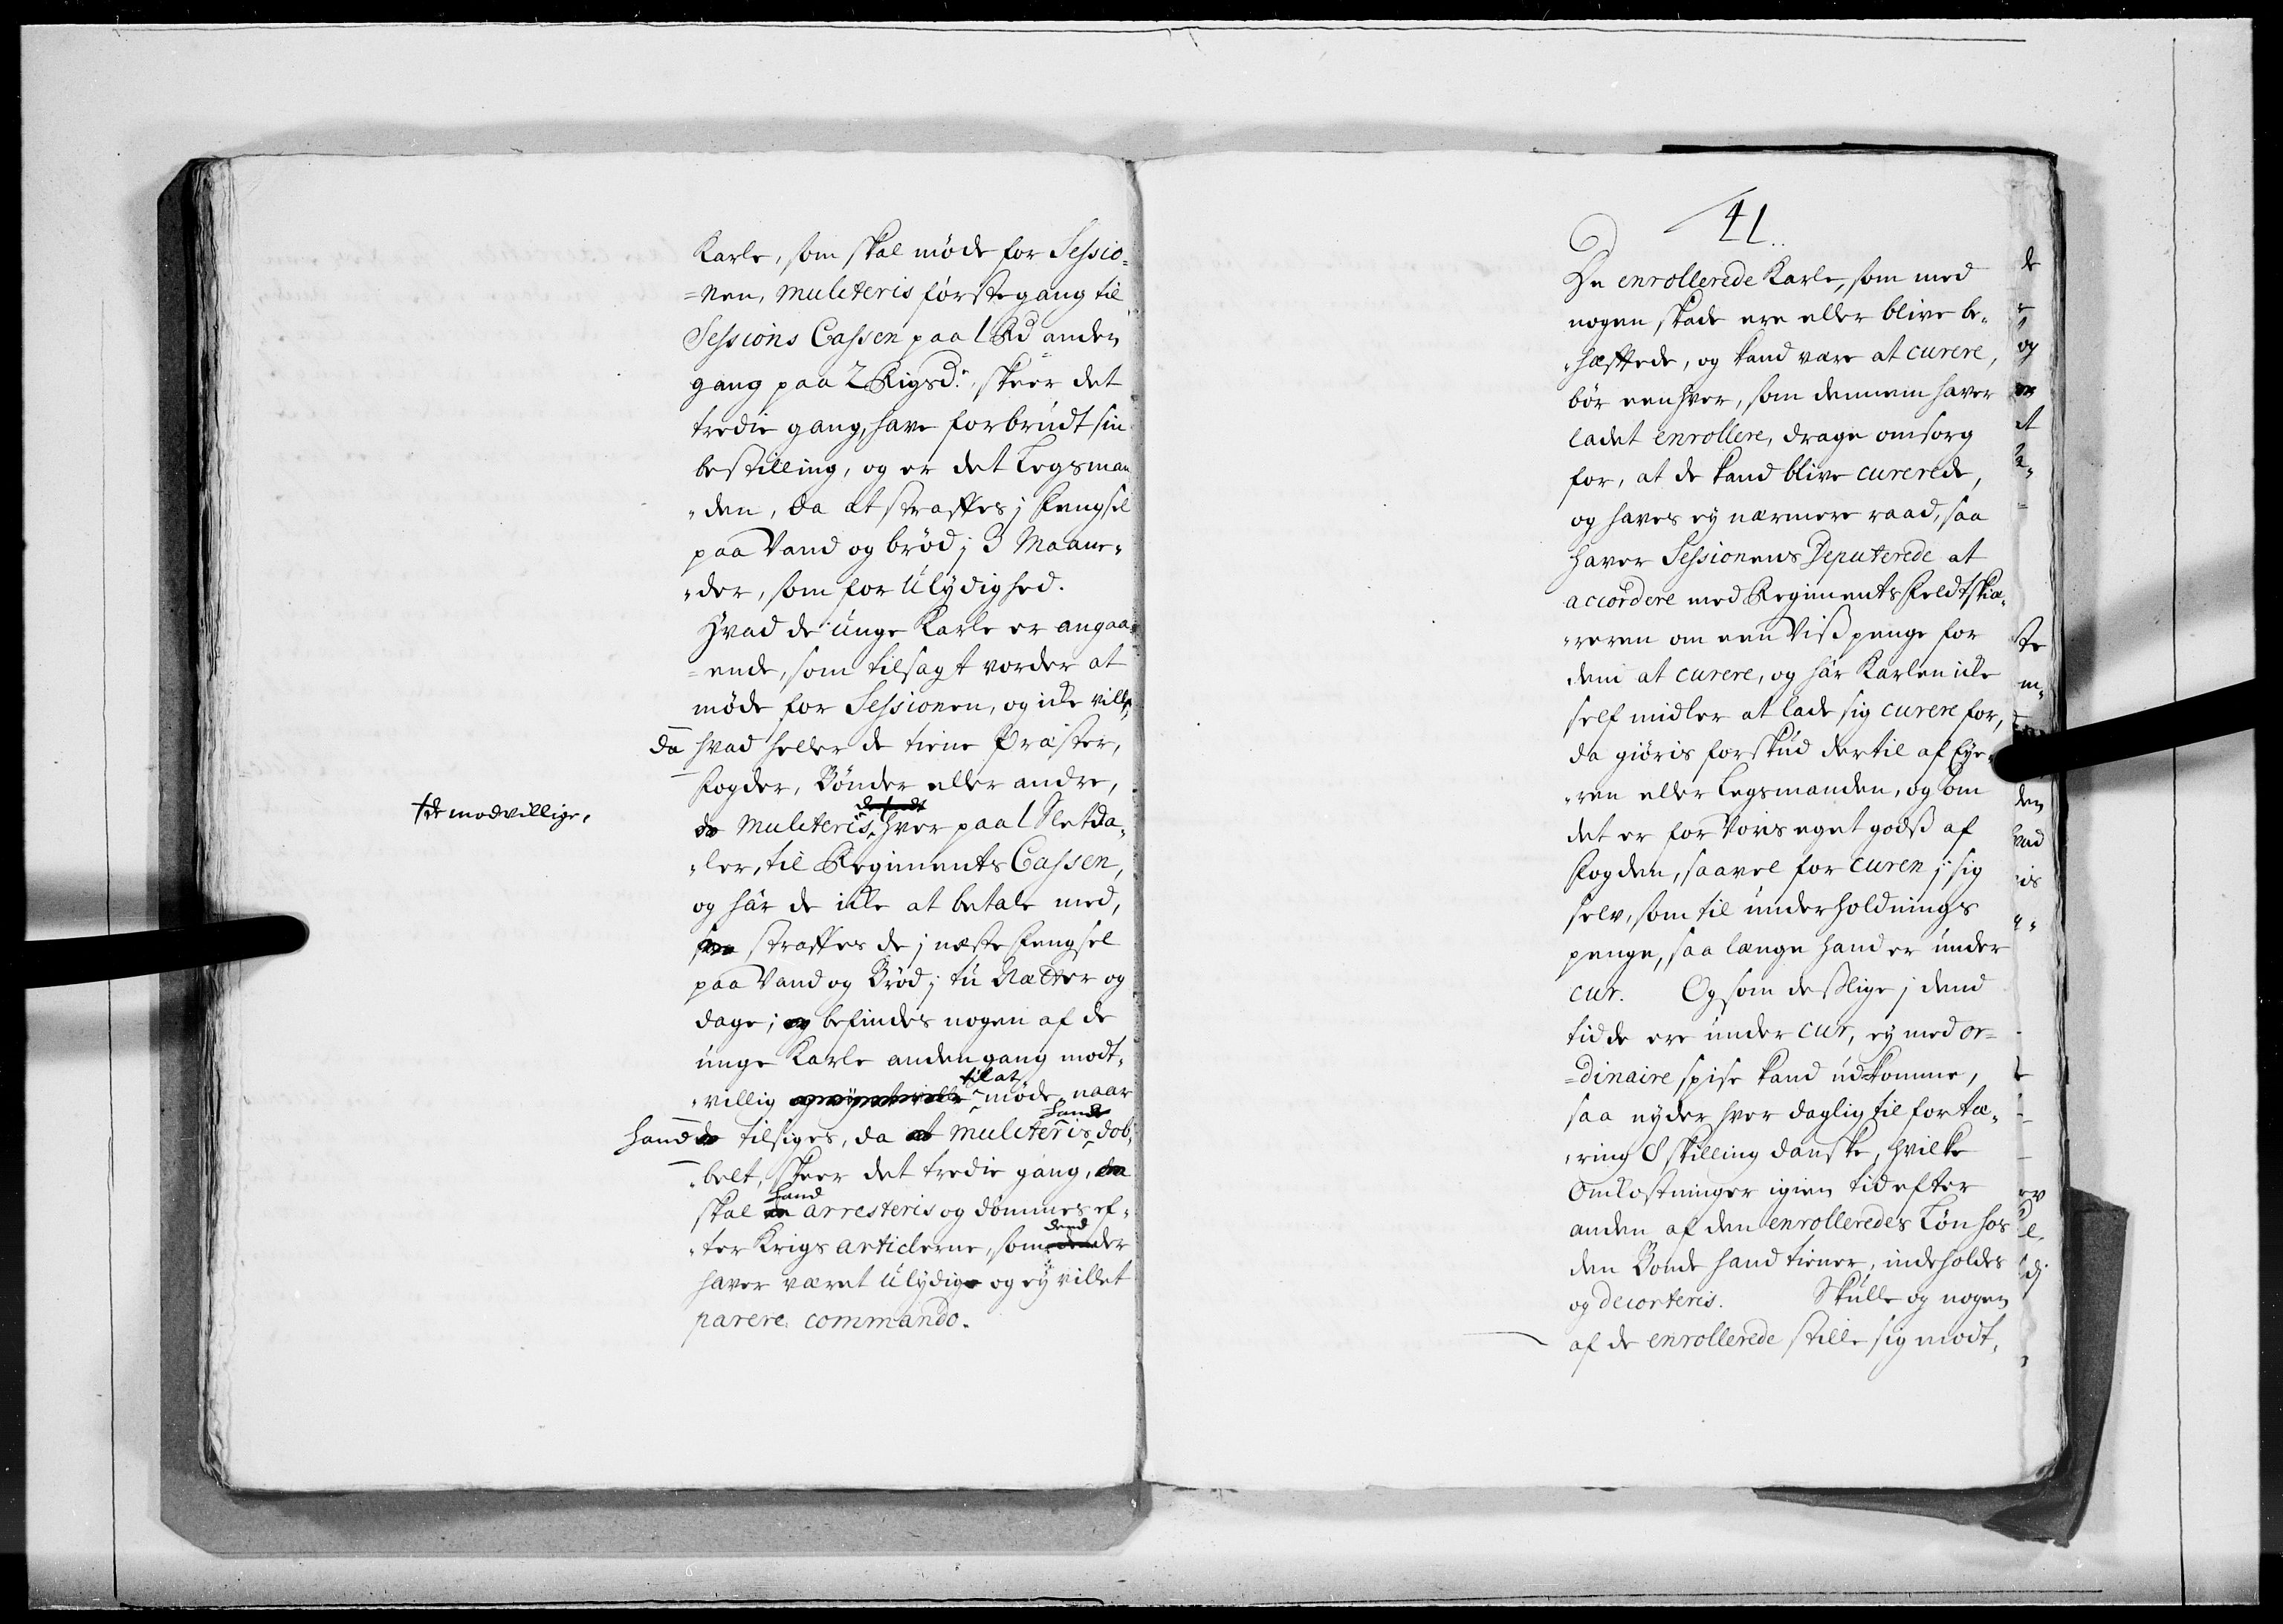 Karle, som skal møde for Sessio=
=nen, mulcteris første gang til
Sessions Cassen paa 1 Rd anden
gang paa 2 Rigsd.r, skeer det
tredie gang, have forbrudt sin
bestilling, og er det Legsman
"den, da at straffes j Fengsel
paa Vand og brød j 3 Maane"
"der, som for Ulydighed.
Hvad de unge Karle er angaa=
=ende, som tilsagt vorder at
møde for Sessionen, og icke ville,
da hvad heller de tiene Præster,
Fogder, Bønder eller andre,
†de modvillige,
da mulcteris, hver paa 1 Sletda"
"ler, til Regiments Cassen,
og har de icke at betale med,
straffes de j næste Fengsel
paa Vand og Brød j tu Nætter og
dage; og befindes nogen af de
unge Karle anden gang modt"
til at
"villig møde, naar
hand
hand de tilsiges, da at mulcteris dob"
"belt, skeer det tredie gang, da
hand
skal arresteris og dømmes ef"
dend
"ter Krigs articlerne, som der
haver været Ulydige og ey villet
parere commando.
41
De enrollerede Karle, som med
nogen skade ere eller blive be"
"hæftede, og kand være at curere,
bør eenhver, som dennem haver
ladet enrollere, drage omsorg
for, at de kand blive curerede,
og haves ey nærmere raad, saa
haver Sessionens Deputerede at
accordere med Regiments Feldtskiæ"
"reren om een Viß penge for
dem at curere, og har Karlen icke
self midler at lade sig curere for,
da giøris forskud dertil af Eye"
"ren eller Legsmanden, og som
det er for Vores eget godß af
Fogden, saavel for curen j sig
selv, som til underholdnings
penge, saa længe hand er under
cur. Og som deßlige j dend
tid de ere under cur, ey med or=
=dinaire spise kand udkomme,
saa nyder hver daglig til fortæ"
"ring 8 skilling danske, hvilke
Omkostninger igien tid efter
anden af den enrolleredes Løn hos
den Bonde hand tiener, indeholdes
og decorteris. Skulle og nogen
af de enrollerede stille sig modt"